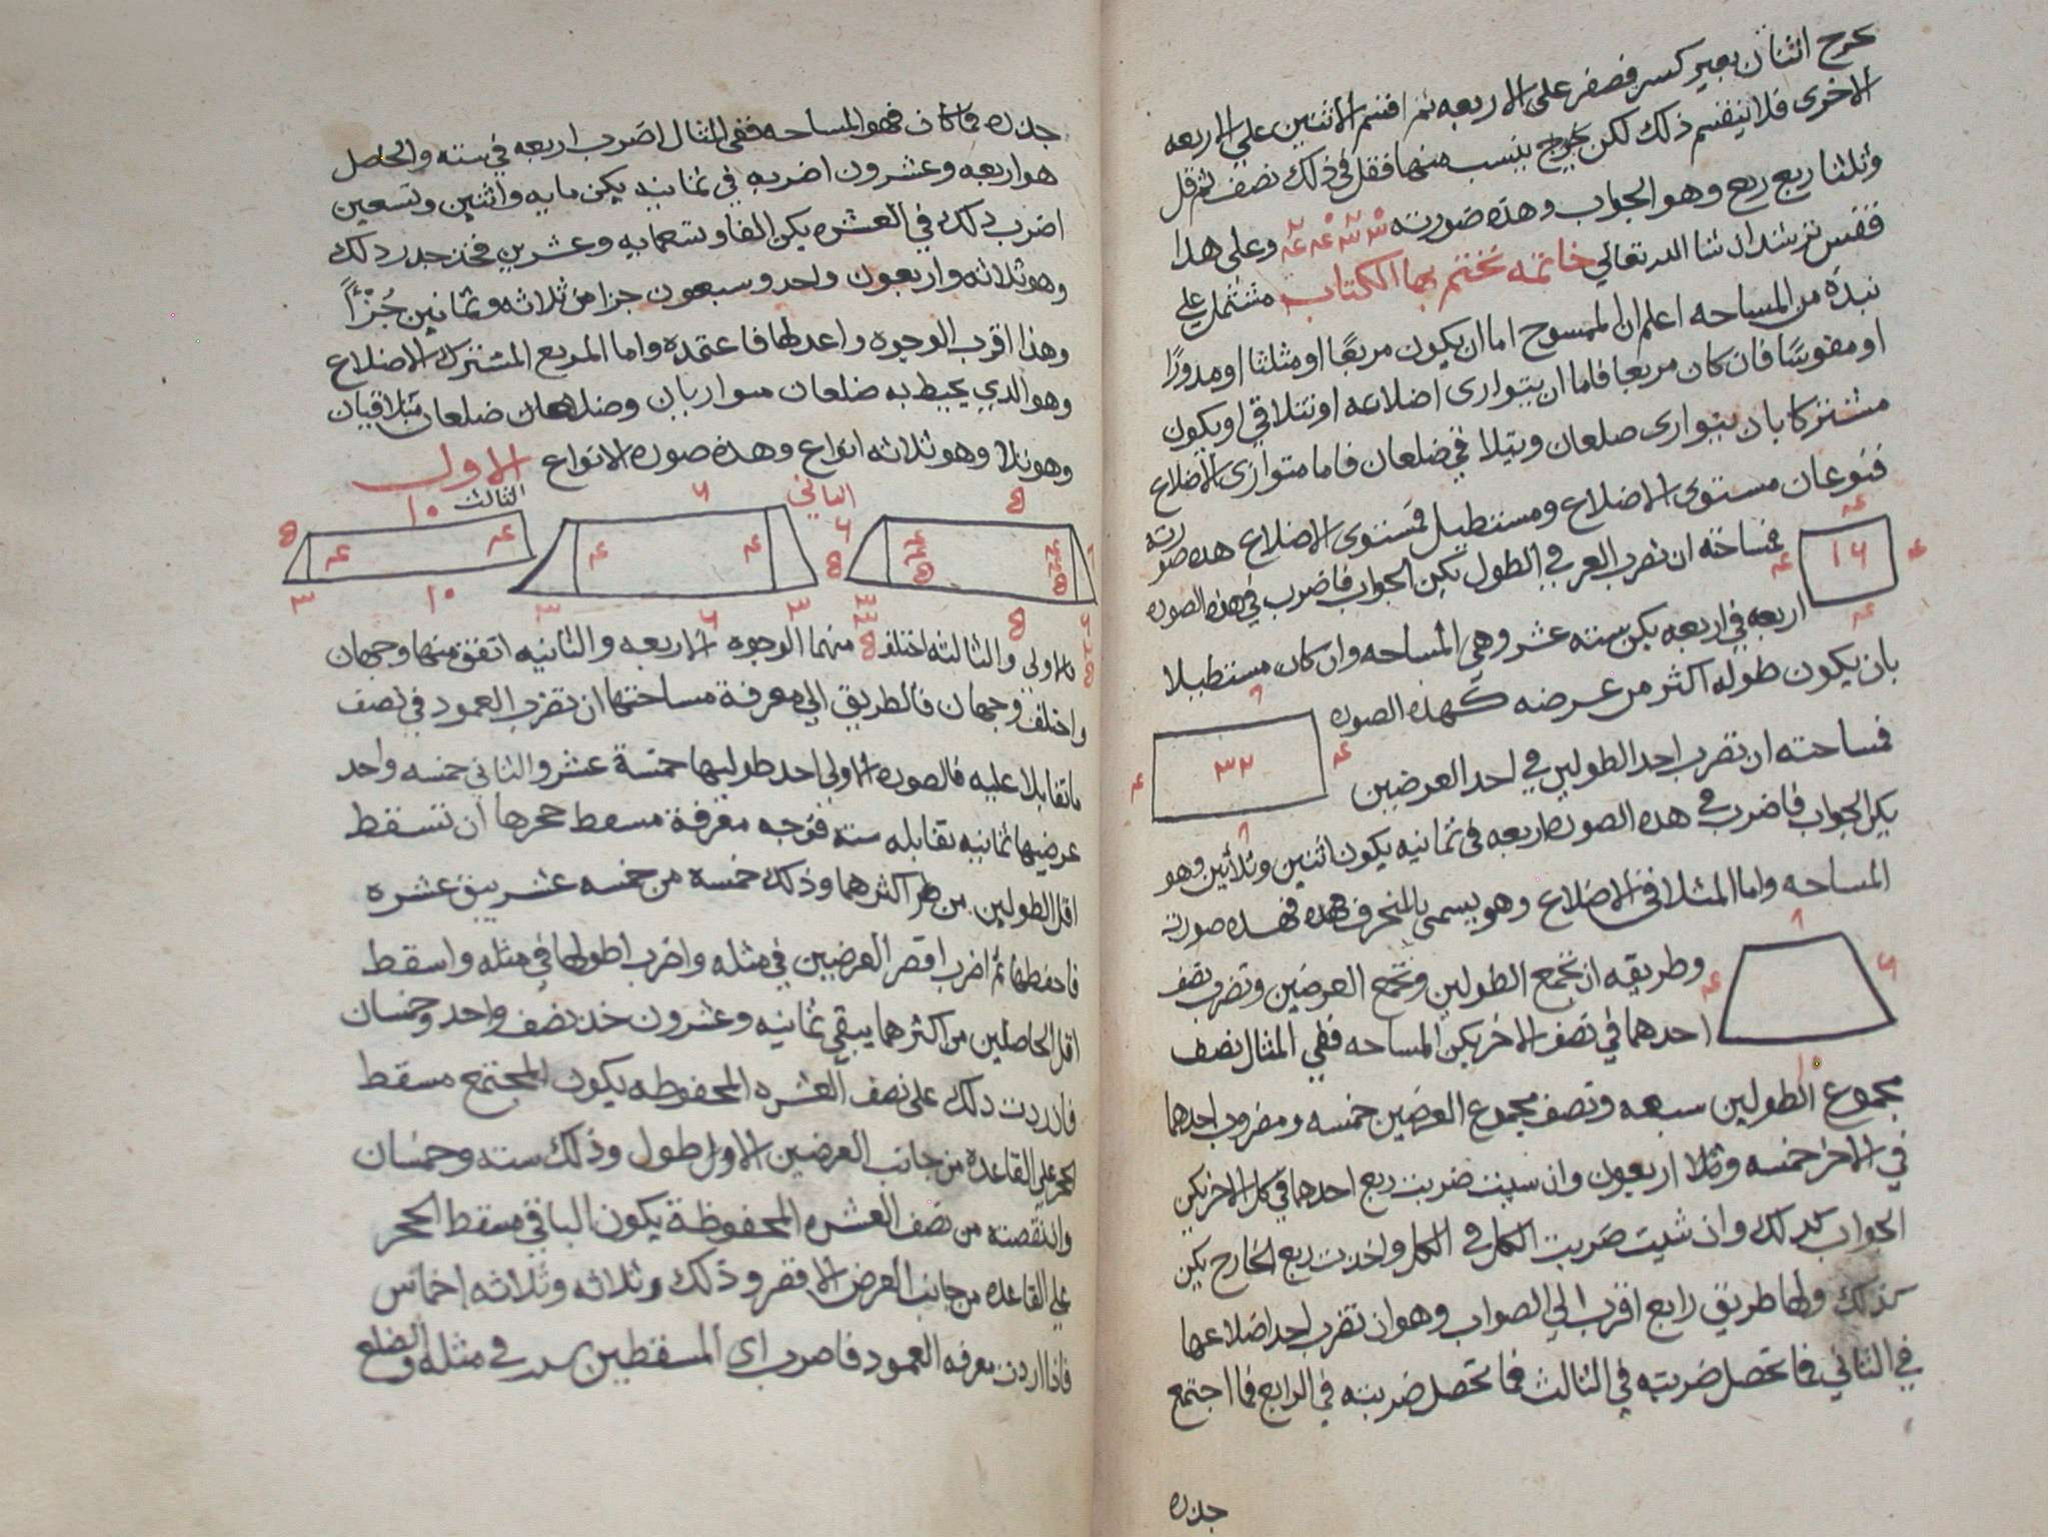 يخرج اثنان بغير كسر فصفر على الاربعه ثم اقسم الاثنين على الاربعه
الاخرى فلا ينقسم ذلك لكن يخرج بنسب منها فقل في ذلك نصف ثم قل
وثلثا ربع ربع وهو الجواب وهذه صورته وعلى هذا
فقس ترشد ان شا الله تعالى خاتمه نختم بها الكتاب مشتمل على
نبذة من المساحه اعلم ان الممسوح اما ان يكون مربعًا او مثلثا او مدورًا
او مقوسًا فان كان مربعا فاما ان يتوارى اضلاعه او تتلاقي او يكون
مشتركا بان يتوارى ضلعان ويتلا في ضلعان فاما متوازى الاضلاع
فنوعان مستوى الاضلاع ومستطيل فمستوى الاضلاع هذه صورته
فمساحته ان تضرب العرض في الطول يكن الجواب فاضرب في هذه الصوره
١٦ ع ع ع ع
اربعه في اربعه يكن سته عشر وهي المساحه وان كان مستطيلا
بان يكون طوله اكثر من عرضه كهذه الصوره
٣٢ ع ع ٨ ٨
فمساحته ان تضرب احد الطولين في احد العرضين
يكن الجواب فاضرب في هذه الصوره اربعه في ثمانيه يكون اثنين وثلاثين وهو
المساحه واما المتلاقي الاضلاع وهو يسمى بالمنحرف فهذه صورته
وطريقه ان تجمع الطولين وتجمع العرضين وتضرب نصف
احدهما في نصف الاخر يكن المساحه ففي المثال نصف
مجموع الطولين سبعه ونصف مجموع العرضين خمسه ومضروب احدهما
في الاخر خمسه وثلا اربعون وان شيت ضربت ربع احدهما في كل الاخر يكن
الجواب كذلك وان شيت ضربت الكل في الكل واخذت ربع الخارج يكن
كذلك ولها طريق رابع اقرب الي الصواب وهو ان تضرب احد اضلاعها
في الثاني فما تحصل ضربته في الثالث فما تحصل ضربته في الرابع فما اجتمع
جذره
جذره فما كان فهو المساحه ففي المثال اضرب اربعه في سته والحاصل
هو اربعه وعشرون اضربه في ثمانيه يكن مايه واثنين وتسعين
اضرب ذلك في العشره يكن الفا وتسعمايه وعشرين فخذ جذر ذلك
وهو ثلاثه واربعون واحد وسبعون جزا من ثلاثه وثمانين جُزْءًا
وهذا اقرب الوجوه واعدلها فاعتمده واما المربع المشترك الاضلاع
وهو الذي يحيط به ضلعان متواريان وضلعان متلاقيان
وهو ثلاثه انواع وهذه صوره الانواع الاول
الثاني
الثالث
١٠
١٠
فالاولى والثالثه اختلف منهما الوجوه الاربعه والثانيه اتفق منها وجهان
واختلف وجهان فالطريق الي معرفة مساحتها ان تضرب العمود في نصف
ما تقابلا عليه فالصوره الاولى احد طوليها خمسة عشر والثاني خمسه واحد
عرضيها ثمانيه يقابله سته فوجه معرفة مسقط حجرها ان تسقط
اقل الطولين من اكثرهما وذلك خمسة من خمسه عشر يبق عشره
فاحفظها ثم اضرب اقصر العرضين في مثله واضرب اطولها في مثله واسقط
اقل الحاصلين من اكثرهما يبقي ثمانيه وعشرون خذ نصف واحد وخمسان
فان زدت ذلك على نصف العشره المحفوظه يكون المجتمع مسقط
الحجر علي القاعده من جانب العرضين الاول طول وذلك سته وخمسان
وان نقصته من نصف العشره المحفوظة يكون الباقي مسقط الحجر
علي القاعده من جانب العرض الاقصر وذلك وثلاثه وثلاثه اخماس
فاذا اردت معرفه العمود فاضرب اي المسقطين في مثله والضلع